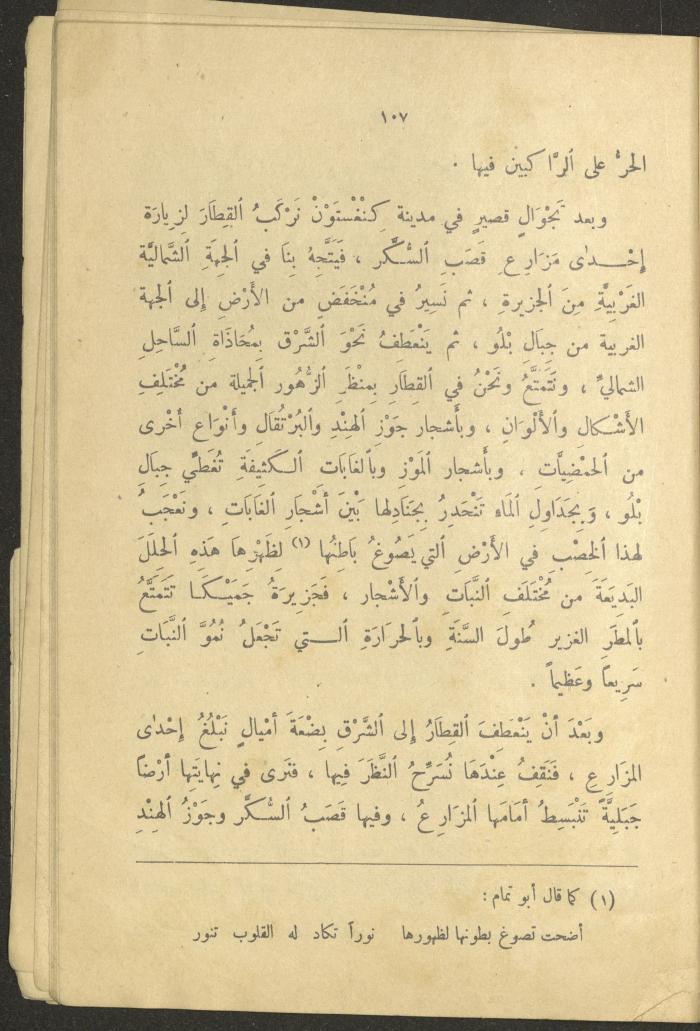 ١٠٧
الحرُّ على ٱلرَّاكبين فيها .
وبعد تَجْوَالٍ قصيرٍ في مدينة كِنْغْستَوْنْ نَرْكَبُ ٱلقِطَارَ لِزِيارَة
إِحْدٰى مَزَارِعِ قَصَبِ ٱلسُّكَّر ، فَيَتَّجِهُ بِنَا في ٱلجِهَةِ ٱلشَّمَالِيَّة
الغَرْبِيَّةِ مِنَ ٱلجزيرةِ ، ثم نَسِيرُ في مُنْخَفَضٍ من الأَرْضِ إِلى ٱلجهة
الغربية من جِبَالِ بْلُو ، ثم يَنْعَطِفُ نَحْوَ ٱلشَّرْق بِمُحَاذَاةِ ٱلسَّاحلِ
الشماليِّ ، ونَتَمتَّعُ ونَحْنُ في ٱلقِطَارِ بِمنْظَرِ ٱلزُّهُور ٱلجميلة من مُخْتَلِفِ
الأَشْكَالِ وٱلأَلْوَانِ ، وبأَشجار جَوْزِ ٱلهِنْدِ وٱلبُرْتُقَال وأَنْوَاعٍ أُخْرى
من ٱلحَمْضِيَّاتِ ، وبأَشجار ٱلمَوْزِ وبٱلغَابَات ٱلكَثِيفَةِ تُغَطِّي جِبَالَ
بْلُو ، وَبِجَدَاوِلِ ٱلمَاءِ تَنْحَدِرُ بِجَنَادِلِها بَيْنَ أَشْجَارِ ٱلغَابَاتِ ، ونَعْجَبُ
لهذا ٱلخِصْبِ في الأَرْضِ ٱلتي يَصُوغُ بَاطِنُها (١) لِظَهْرِهَا هَذِهِ ٱلحُلَلَ
البَدِيعَةَ من مُخْتَلَفِ ٱلنَّبَاتِ وٱلأَشْجار ، فَجَزِيرَةُ جَمَيْكَا تَتَمتَّعُ
بٱلمطَرِ الغزير طُولَ السَّنَةِ وبٱلحرَارَةِ ٱلتي تَجْعَلُ نُمُوَّ ٱلنَّبَاتِ
سَرِيعاً وعَظيماً .
وبَعْدَ أَنْ يَنْعَطِفَ القِطَارُ إِلى ٱلشَّرْقِ بِضْعَةَ أَمْيالٍ نَبْلُغُ إِحْدٰى
المزَارِعِ ، فَنَقِفُ عِنْدَهَا نُسَرِّحُ ٱلنَّظَرَ فِيها ، فنَرى في نِهايَتِها أَرْضاً
جَبَلِيَّةً تَنْبَسِطُ أَمَامَها ٱلمزَارِعُ ، وفيها قَصَبُ ٱلسُّكَّر وجَوْزُ ٱلهِنْدِ
(١) كما قال أبو تمام :
أضحت تصوغ بطونها لظهورها نوراً تكاد له القلوب تنور